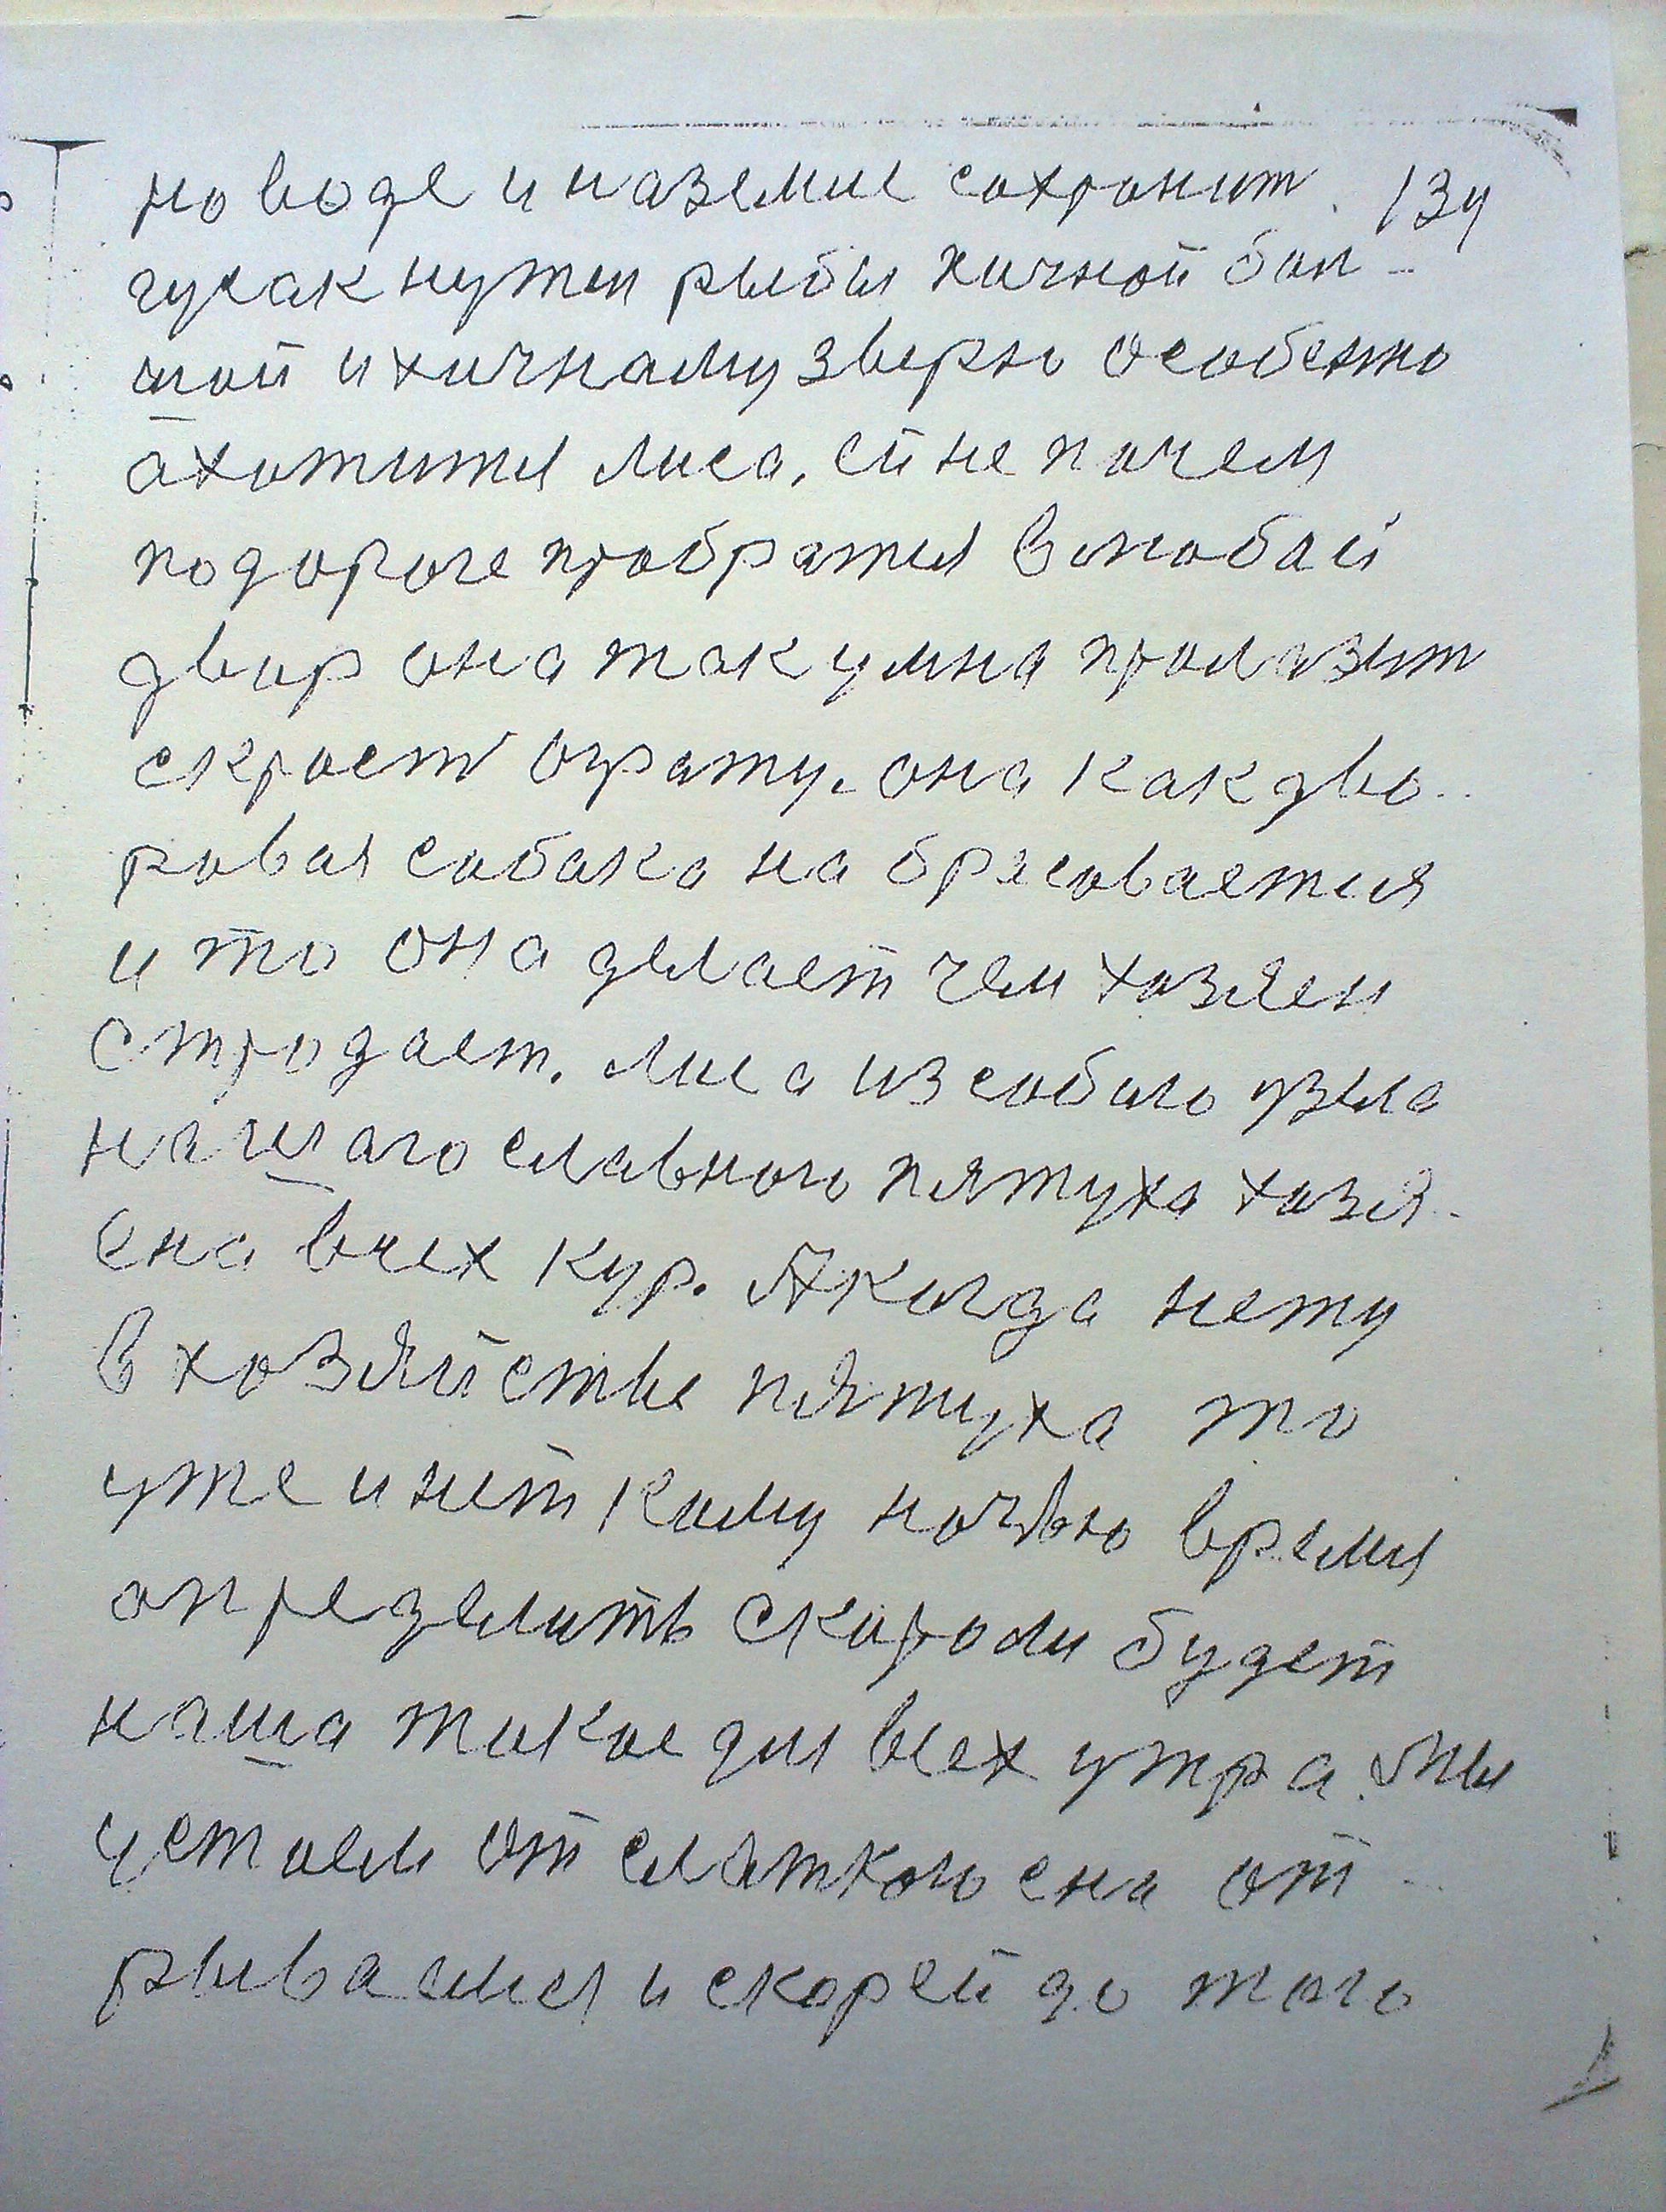 на воде и на земле сохронит. 134
гусак нужен рыбы хичной бол-
шой и хичнаму зверю особенно
ахотится лиса, ей не почем
подороге пробратся в любой
двор она так умна пролазит
скрость ограту. она как дво-
ровая собака на брасовается
и то она делает чем хозяен
стродает. лиса из собого узела
нашаго славного пятуха хозя-
ена всех кур. А когда нету
в хозяйстве пятуха то
уже и нет кому ночью время
определить скороли будет
наша такое для всех утра. Мы
устоем от слаткого сна от-
рываимся и скорей до того